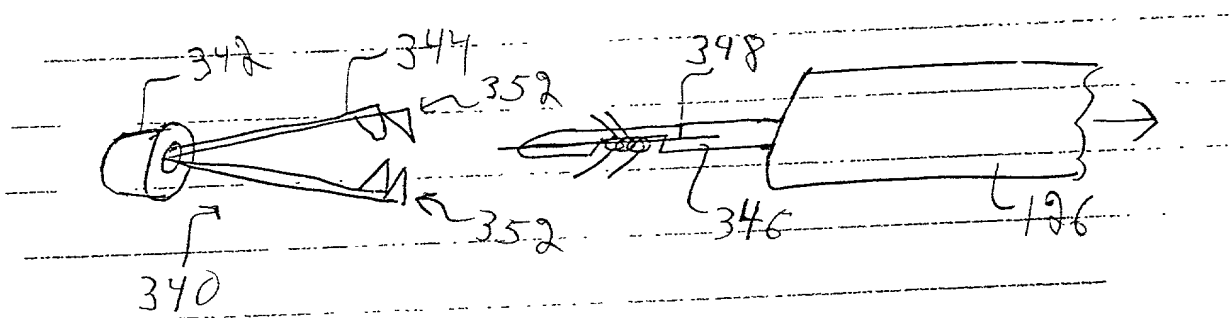 342 344 348
352
352 346 126
340